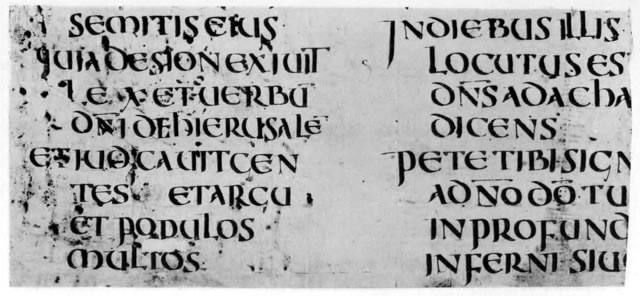 SEMITIS EIUS
QUIA DE SION EXIUIT
LEX ET UERBŪ
DN̄I DE HIERUSALĒ
ET IUDICAUIT GEN
TES ET ARGU
ET POPULOS
MULTOS
IN DIEBUS ILLIS
LOCUTUS ES
DN̄S AD ACHA
DICENS
PETE TIBI SIGN
A DN̄O DŌ TU
IN PROFUND
INFERNI SIU